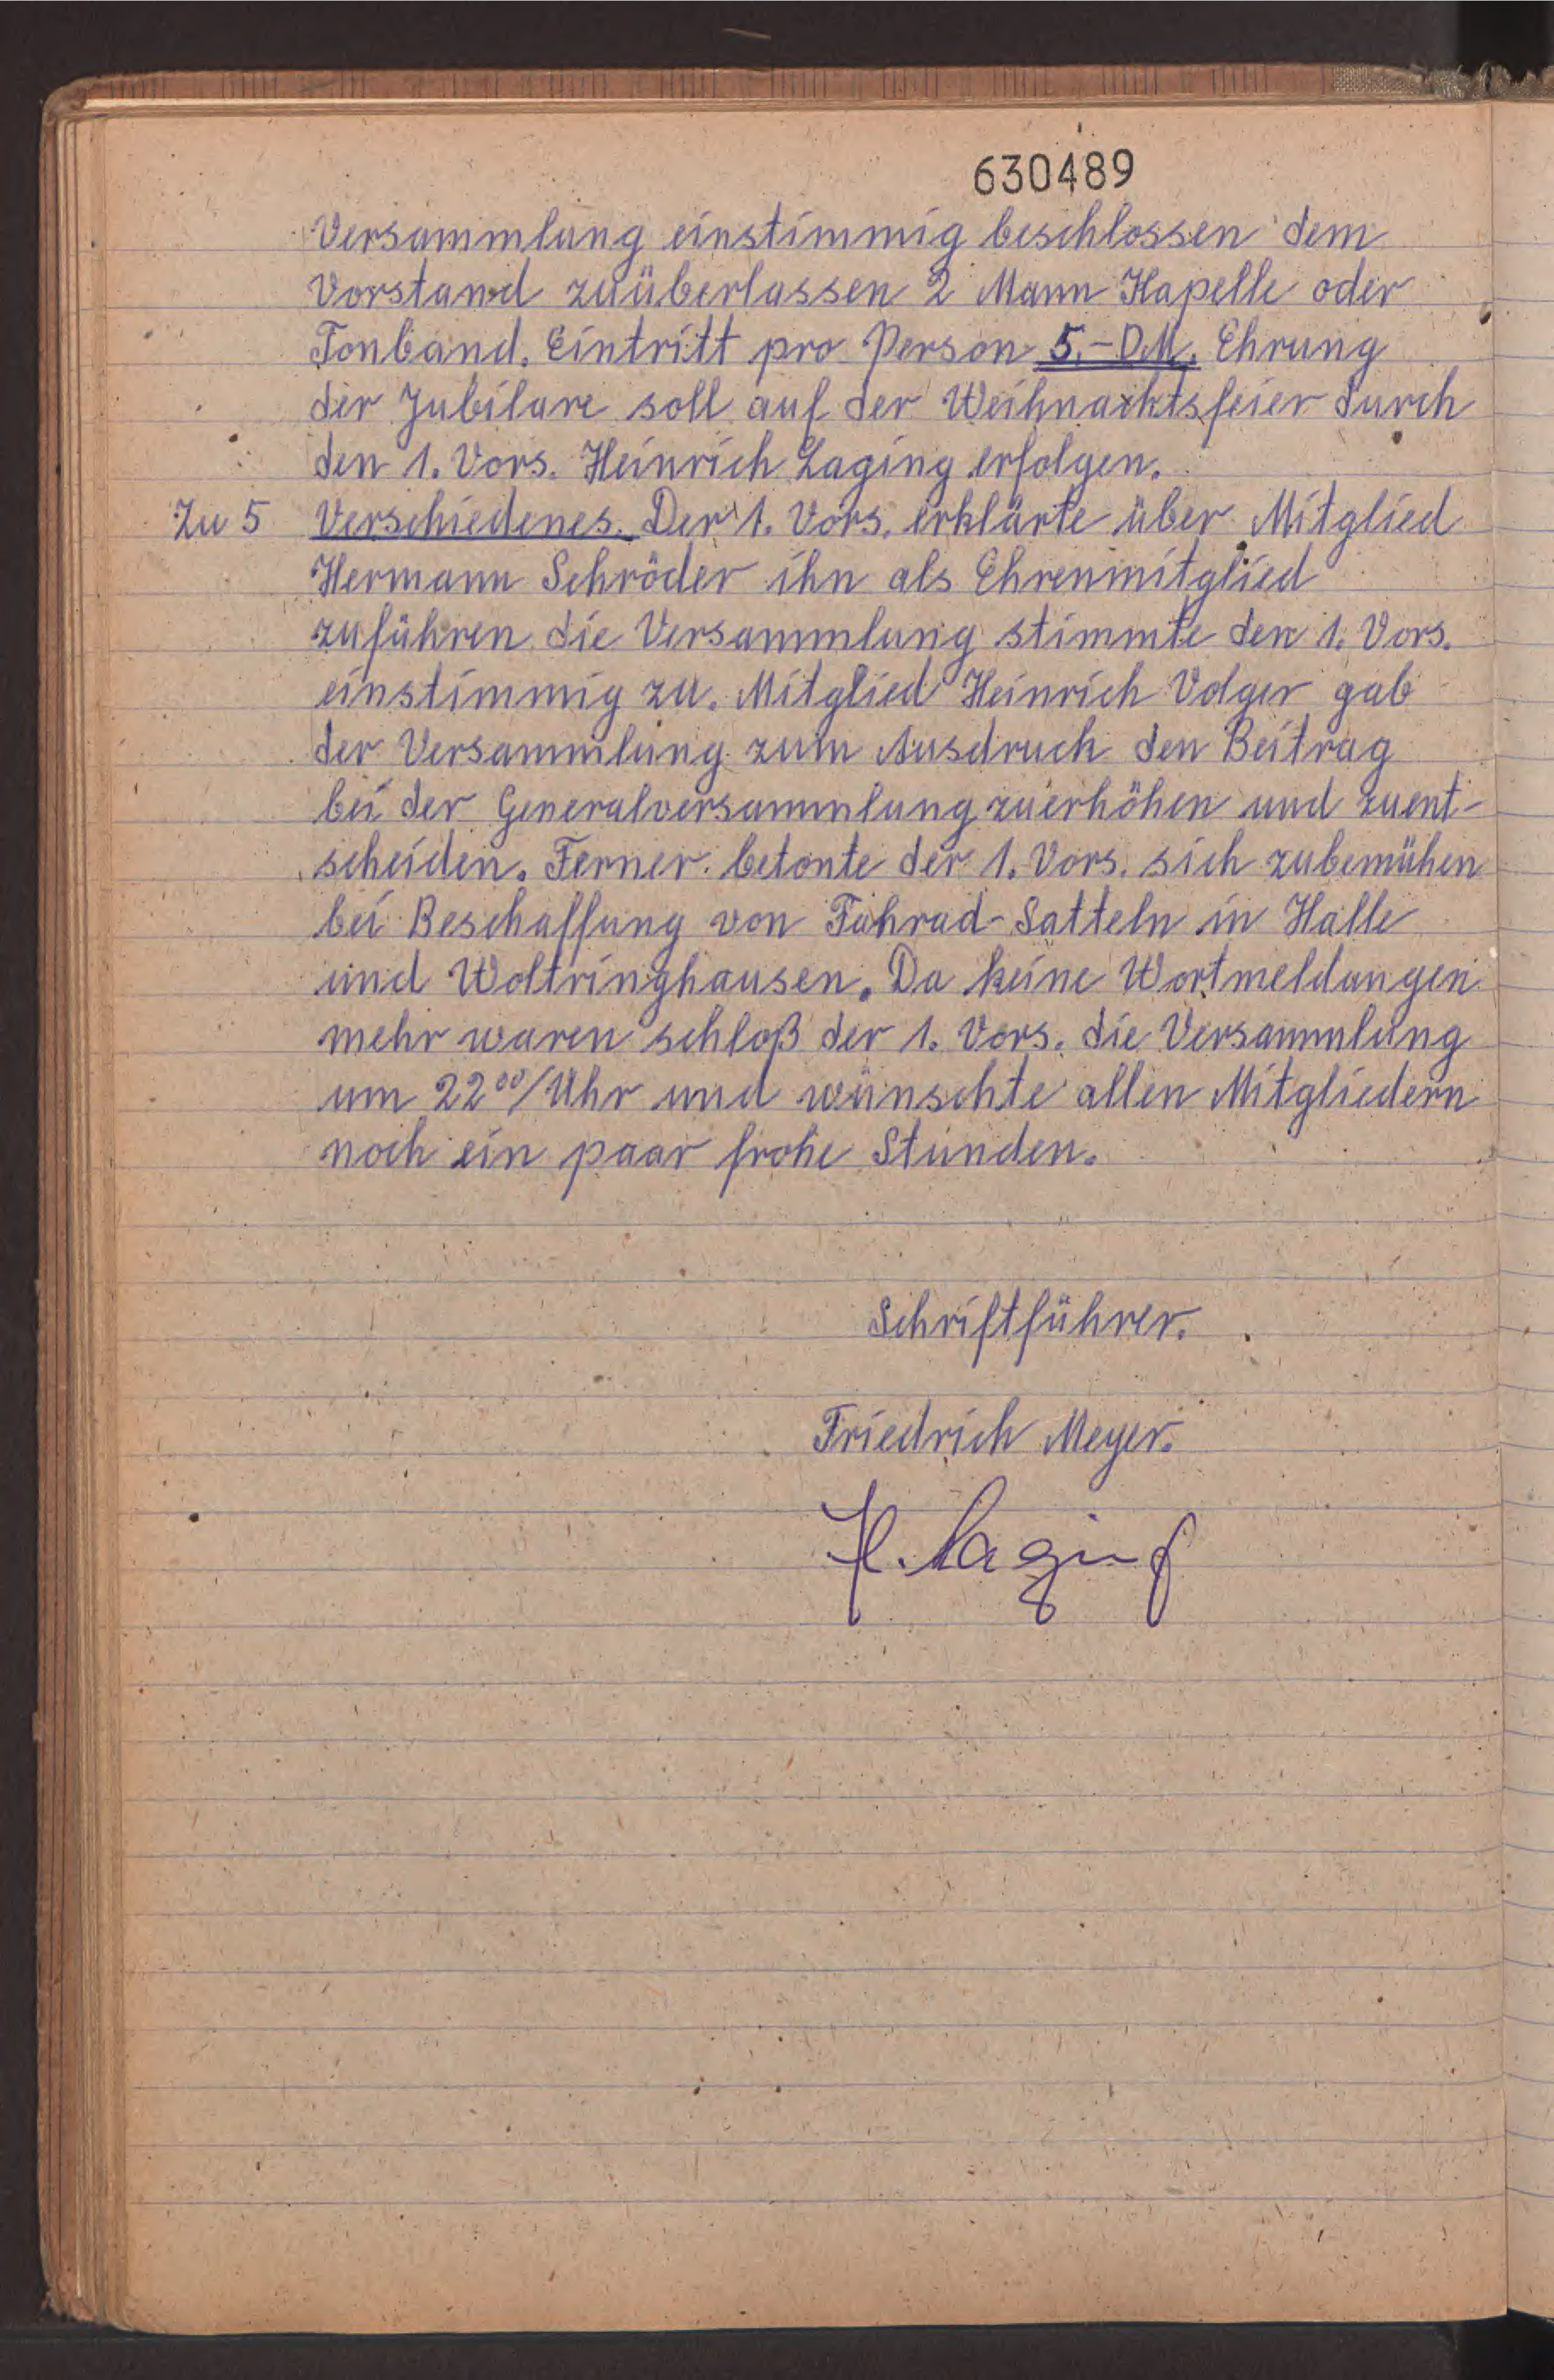 630489
Versammlung einstimmig beschlossen dem
Vorstand zuüberlassen 2 Mann Kapelle oder
Tonband. Eintritt pro Person 5.- DM. Ehrung
der Jubilare soll auf der Weihnachtsfeier durch
den 1. Vors. Heinrich Laging erfolgen.
Zu 5 Verschiedenes. Der 1. Vors. erklärte über Mitglied
Hermann Schröder ihn als Ehrenmitglied
zuführen die Versammlung stimmte den 1. Vors.
einstimmig zu. Mitglied Heinrich Volger gab
der Versammlung zum Ausdruck den Beitrag
bei der Generalversammlung zuerhöhen und zuent-
scheiden. Ferner betonte der 1. Vors. sich zubemühen
bei Beschaffung von Fahrad-Satteln in Halle
und Woltringhausen. Da keine Wortmeldungen
mehr waren schloß der 1. Vors. die Versammlung
um 22⁰⁰/Uhr und wünschte allen Mitgliedern
noch ein paar frohe Stunden.
Schriftführer.
Friedrich Meyer.
H. Laging